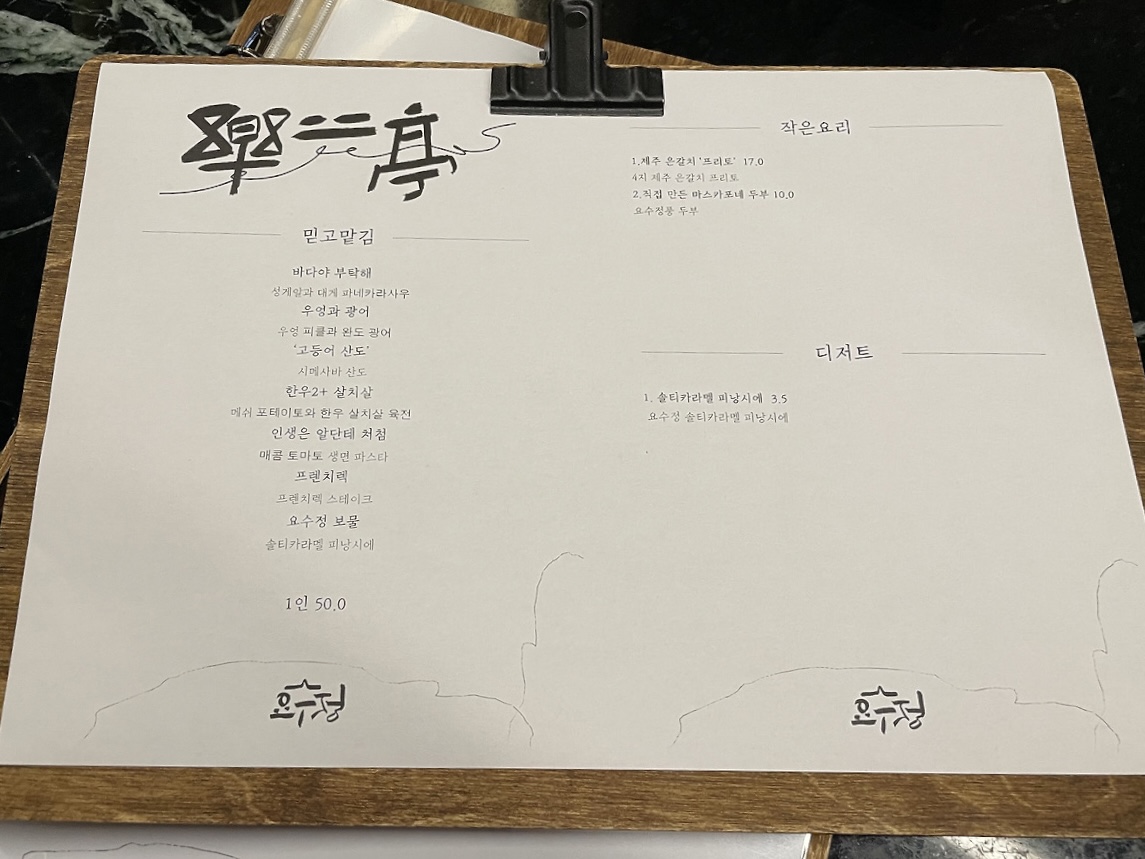 樂水亭
믿고맡김
바다야 부탁해
성게알과 대게 파네카라사우
우엉과 광어
우엉 피클과 완도 광어
'고등어 산도'
시메사바 산도
한우2+ 살치살
메쉬 포테이토와 한우 살치살 육전
인생은 알단테 처첨
매콤 토마토 생면 파스타
프렌치렉
프렌치렉 스테이크
요수정 보물
솔티카라멜 피낭시에
1인 50.0
요수정
작은요리
1.제주 은갈치 '프리토' 17.0
4지 제주 은갈치 프리토
2.직접 만든 마스카포네 두부 10.0
요수정풍 두부
디저트
1. 솔티카라멜 피낭시에 3.5
요수정 솔티카라멜 피낭시에
요수정